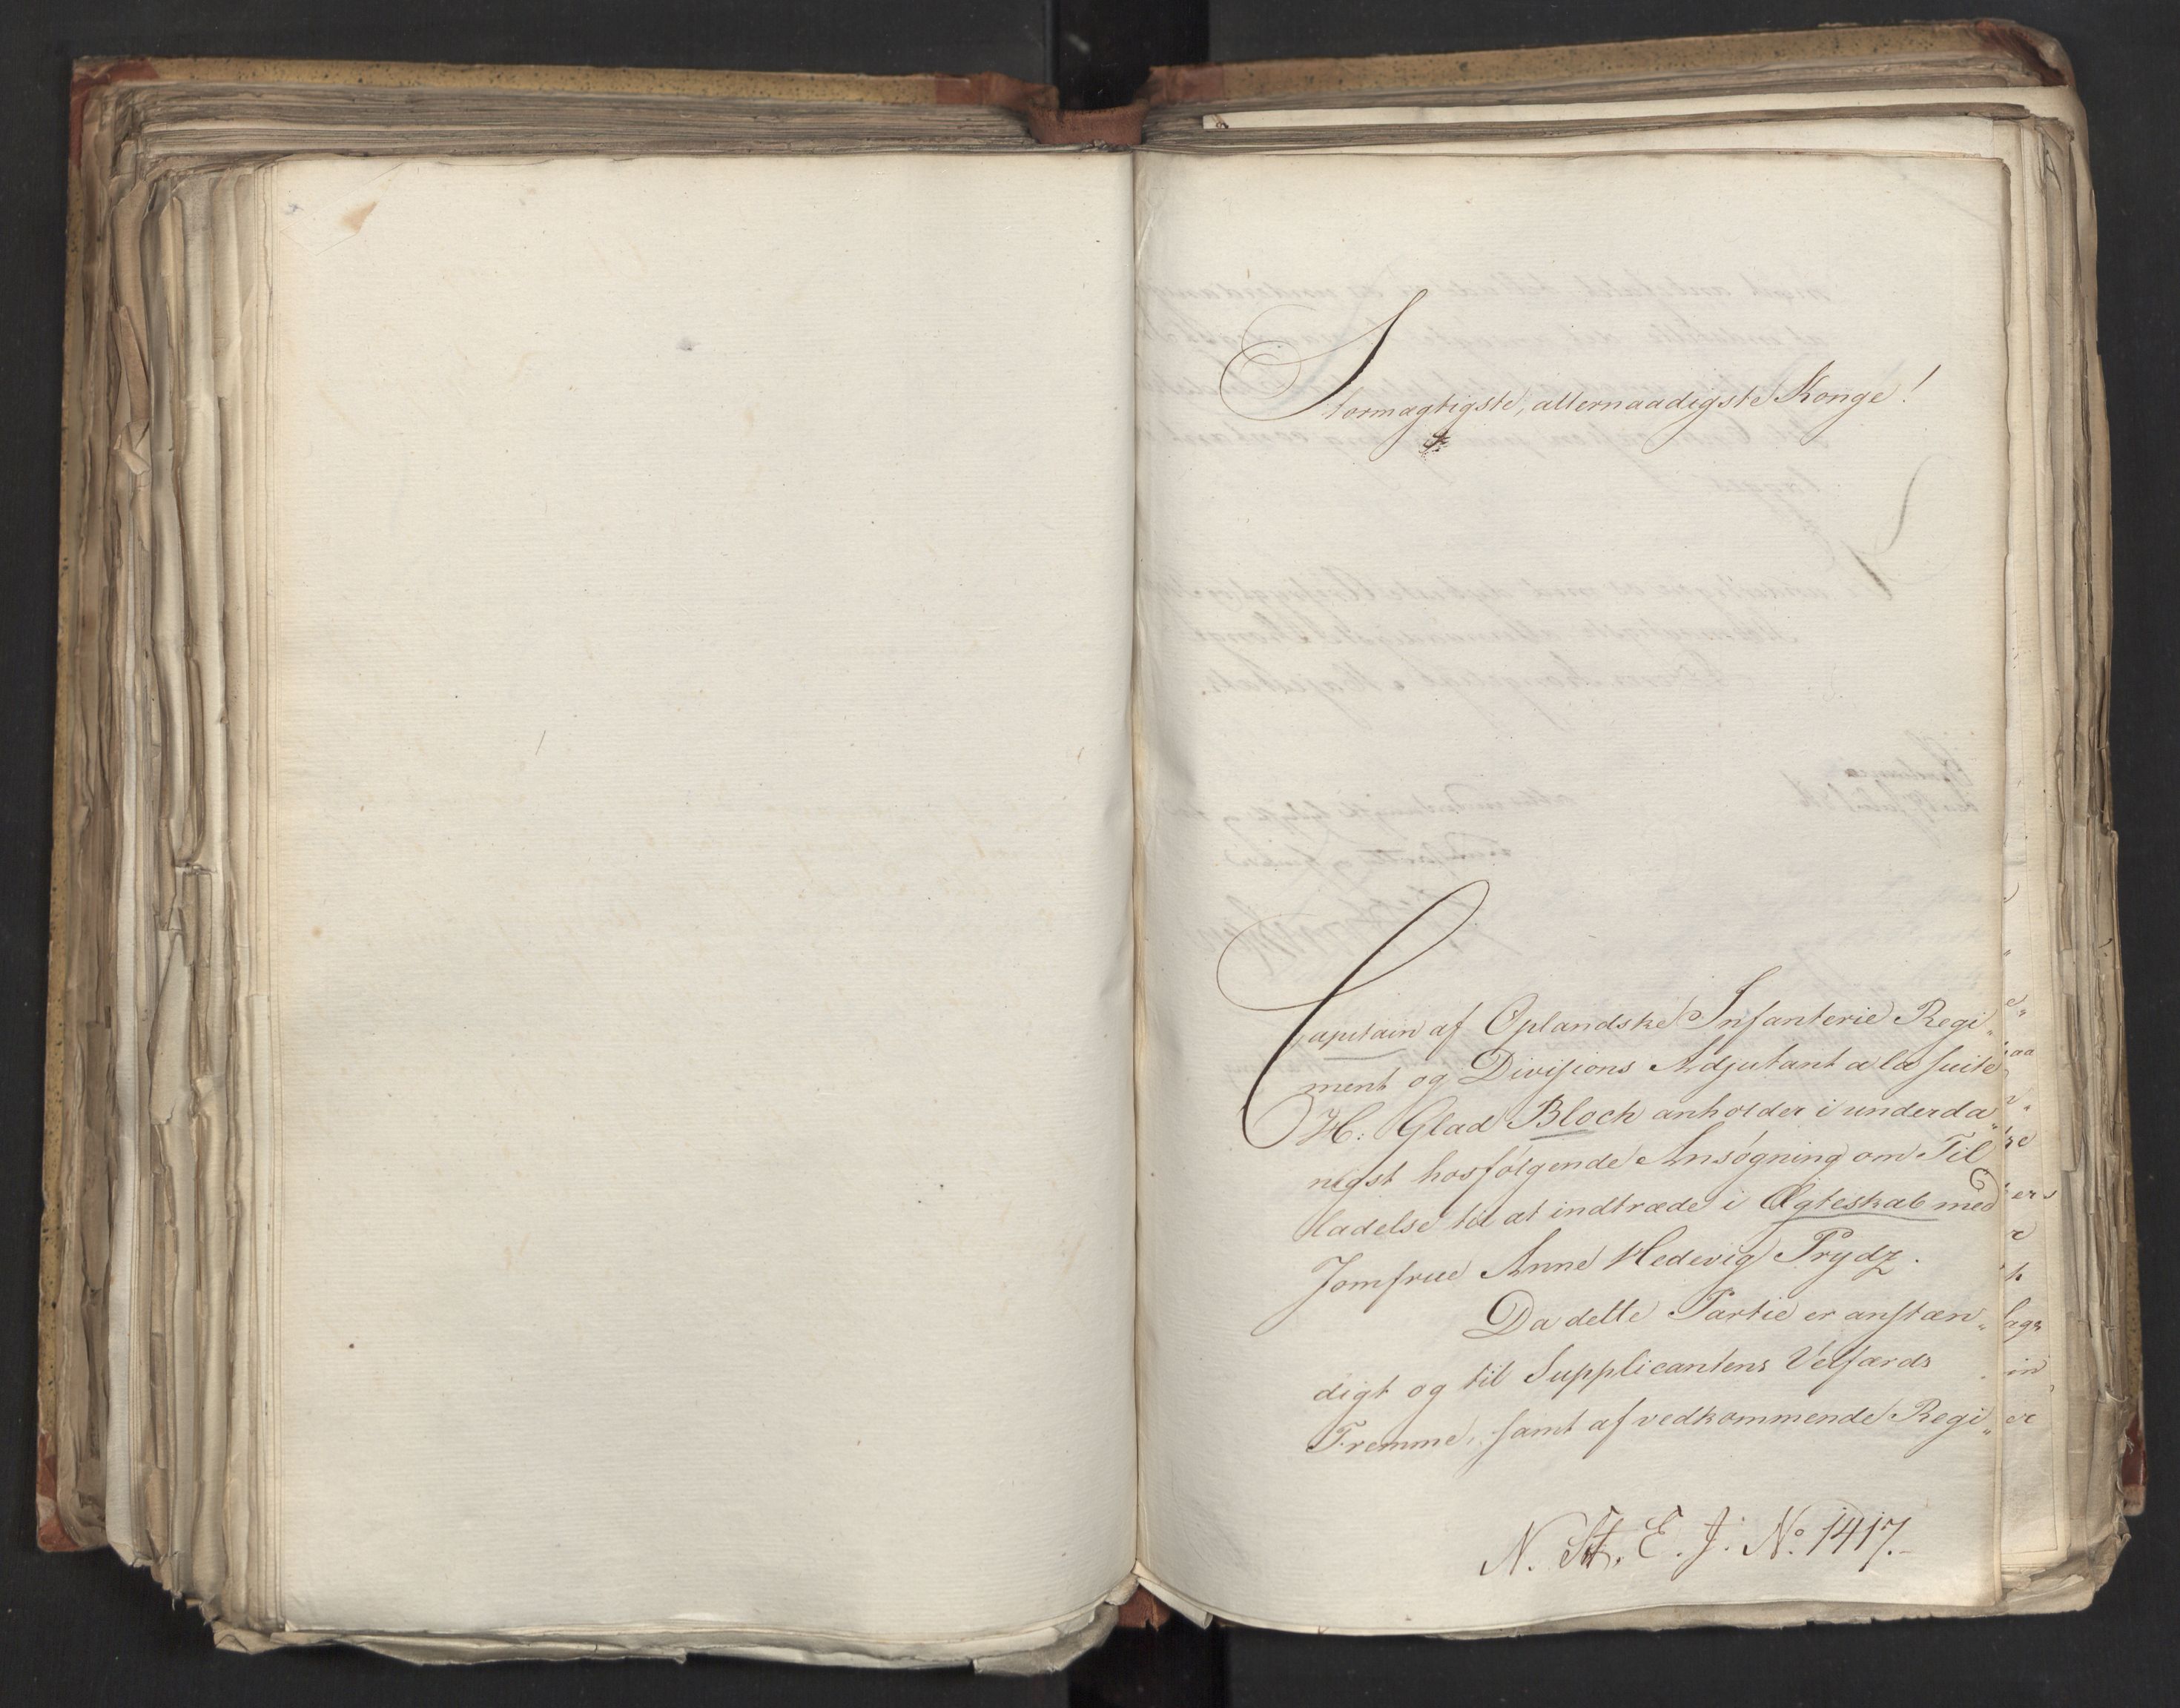 Stormægtigste, allernaadigste Konge!
Capitain af Oplandske Infanterie Regi„
ment og Divisions Adjutant a la suite
H: Glad Bloch anholder i underda„
nigst hosfølgende Ansøgning om Til
ladelse til at indtræde i Ægteskab med
Jomfrue Anne Hedevig Prydz.
Da dette Partie er anstæn„
digt og til Supplicantens Velfærds
Fremme, samt af vedkommende Regi„
N. St. E. J. No. 1417.